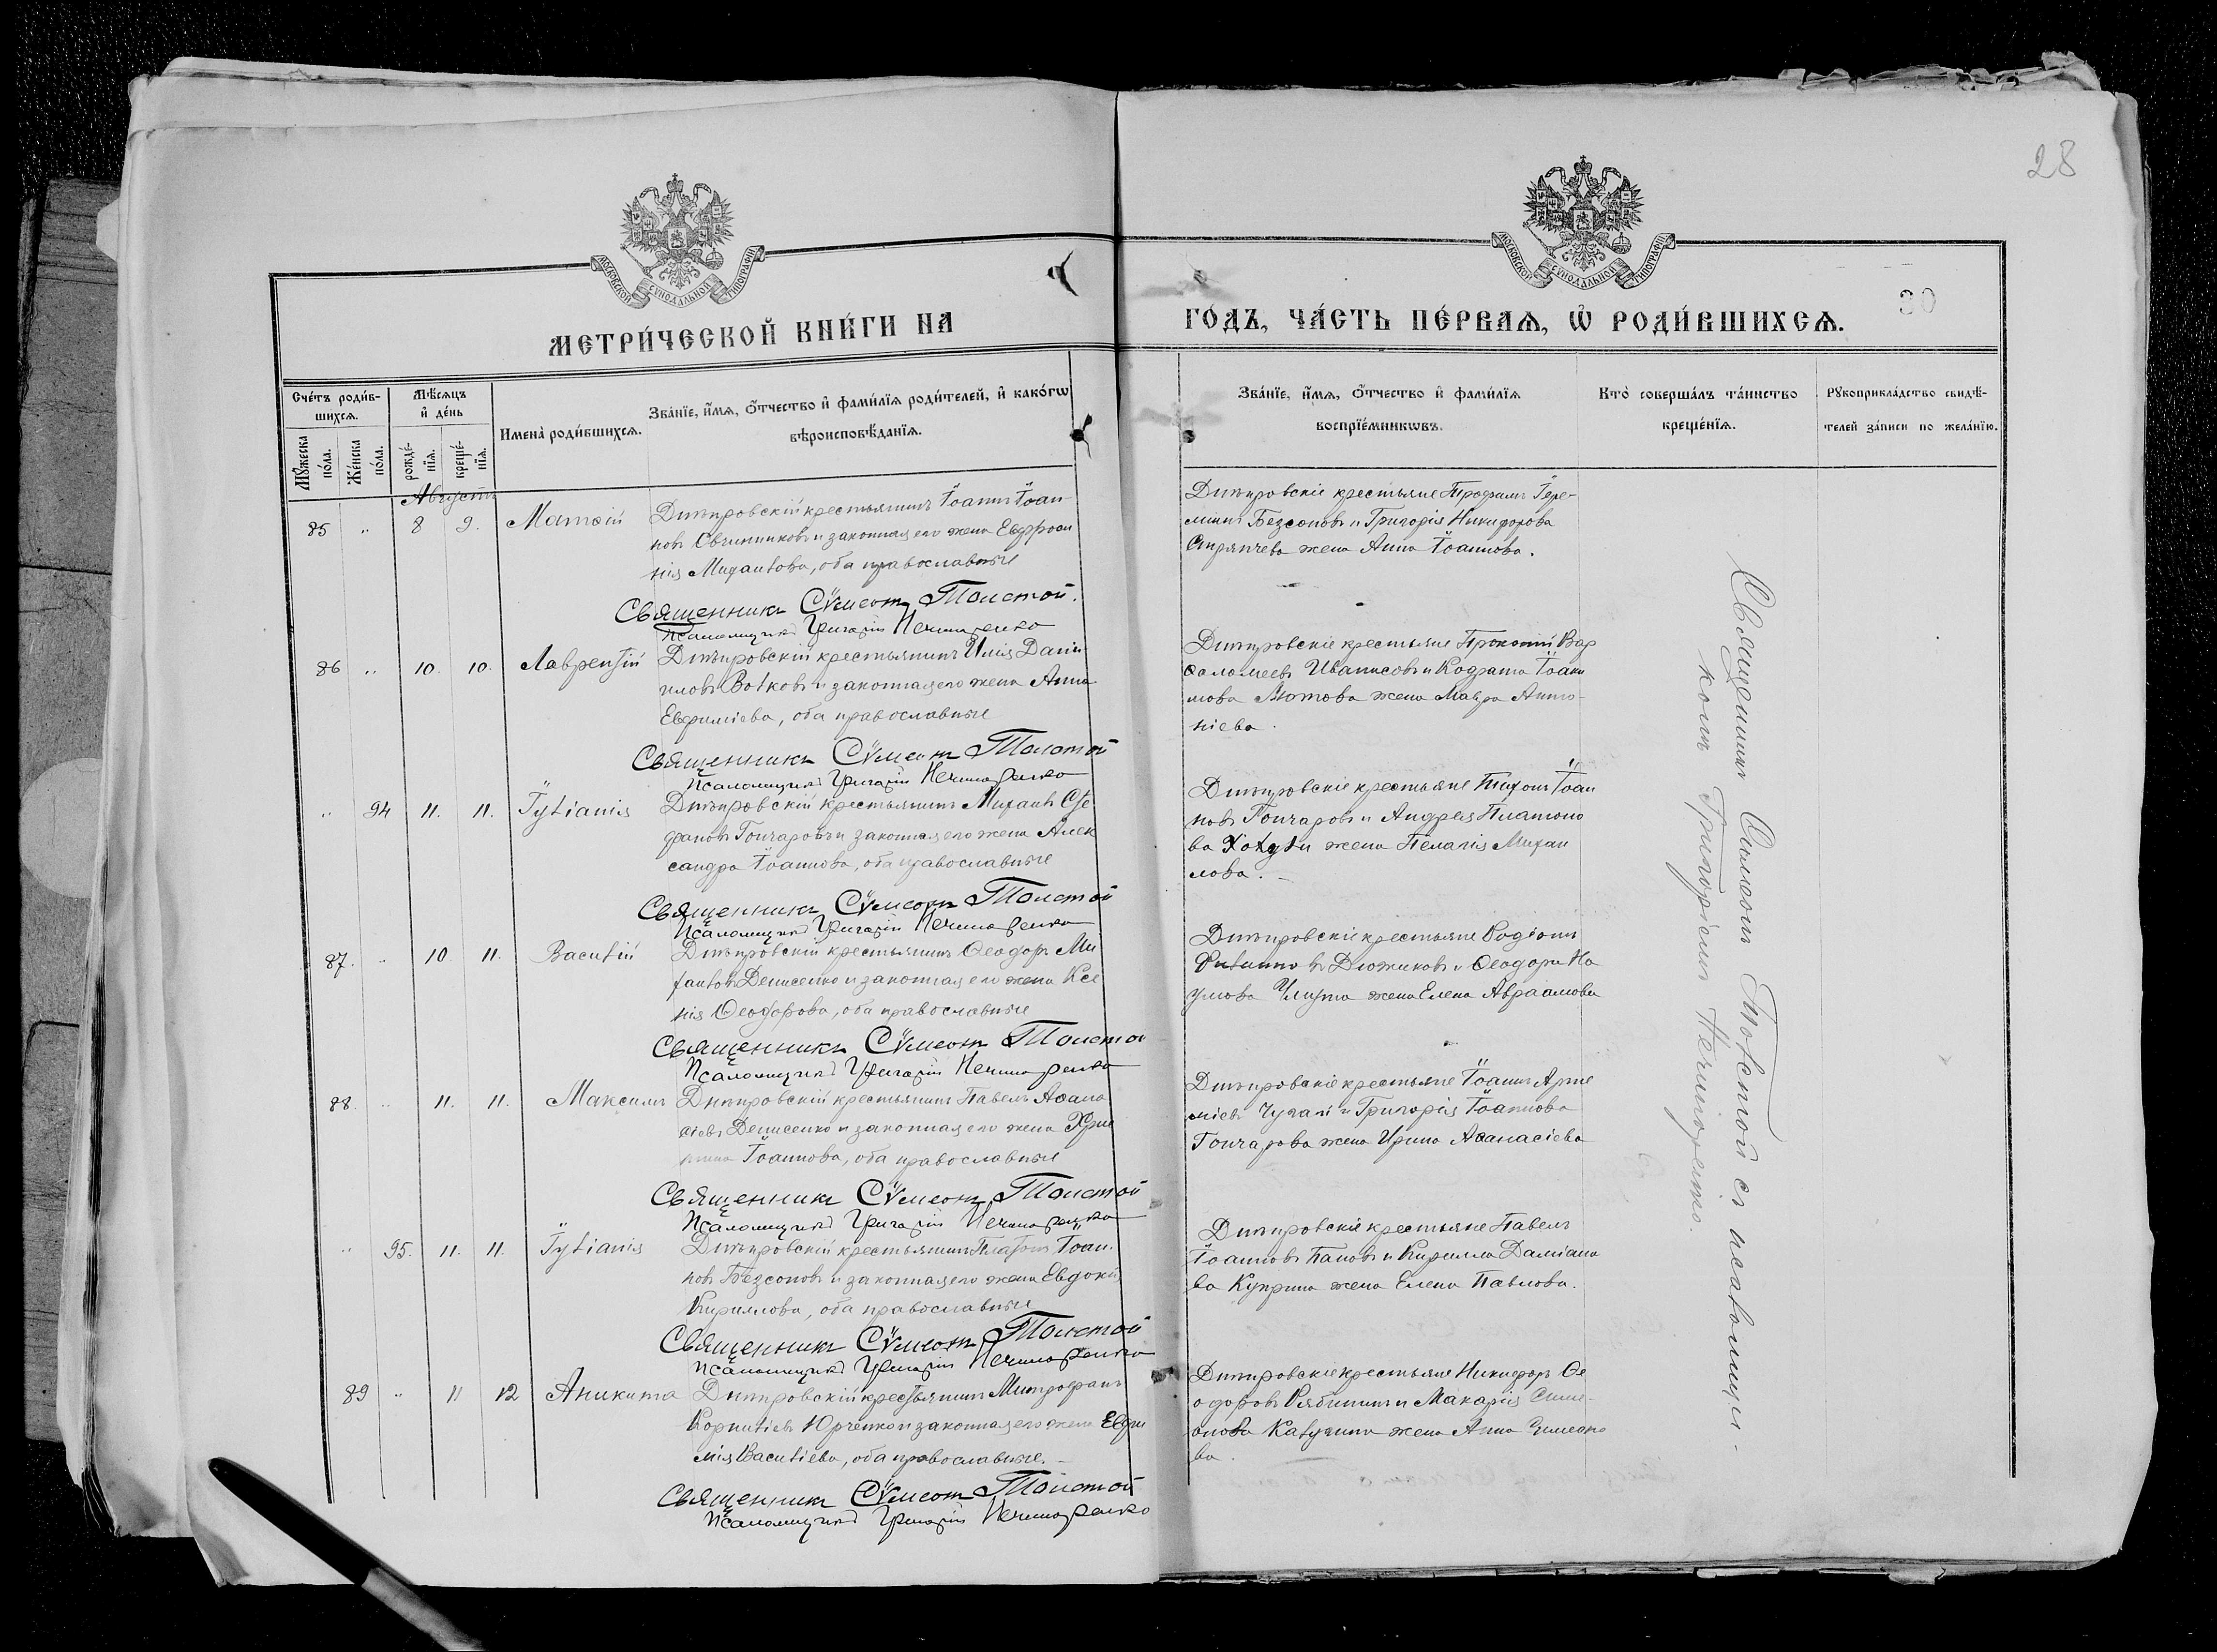 28
30
МОСКОВСКОЙ СѴНОДАЛЬНОЙ ТИПОГРАФІИ
МОСКОВСКОЙ СѴНОДАЛЬНОЙ ТИПОГРАФІИ
МЕТРИ́ЧЕСКОЙ КНИ́ГИ НА
ГО́ДЪ, ЧА́СТЬ ПЕ́РВАѦ, Ѡ РОДИ́ВШИХСѦ.
Сче́тъ роди́в-
шихсѧ.
Мꙋ́жеска по́ла.
Же́нска по́ла.
Мѣ́сѧцъ
и҆ де́нь
рожде́-нїѧ.
креще́-нїѧ.
Имена̀ роди́вшихсѧ.
Зва́нїе, и҆́мѧ, ѻ҆́тчество и҆ фами́лїѧ роди́телей, и҆ како́гѡ
вѣроисповѣ́данїѧ.
Зва́нїе, и҆́мѧ, ѻ҆́тчество и҆ фами́лїѧ
воспрїе́мникѡвъ.
Кто̀ соверша́лъ та́инство
креще́нїѧ.
Рꙋкоприкла́дство свидѣ́-
телей за́писи по жела́нїю.
Августъ
85 " 8 9. Матѳій
Днѣпровскій крестьянинъ Іоаннъ Іоан
новъ Свинниковъ и законная его жена Евфроси
нія Михаилова, оба православные
Священникъ Сѵмеонъ Толстой.
Псаломщикъ Григорій Нечипоренко
Днѣпровскіе крестьяне Трофимъ Іере-
міинъ Безсоновъ и Григорія Никифорова
жена Анна Іоаннова.
86 " 10. 10. Лаврентій
Днѣпровскій крестьянинъ Илія Даніи
ловъ Волковъ и законная его жена Анна
Евфиміева, оба православные
Священникъ Сѵмеонъ Толстой
Псаломщикъ Григорій Нечипоренко
Днѣпровскіе крестьяне Прокопій Вар
ѳоломеевъ и Кодрата Іоаки
мова жена Мавра Анто-
ніева.
" 94 11. 11. Іуліанія
Днѣпровскій крестьянинъ Михаилъ Сте
фановъ Гончаровъ и законная его жена Алек
сандра Іоаннова, оба православные
Священникъ Сѵмеонъ Толстой
Псаломщикъ Григорій Нечипоренко
Днѣпровскіе крестьяне Тихонъ Іоан
новъ Гончаровъ и Андрея Платоно
ва жена Пелагія Михаи
лова.
87. " 10 11. Василій
Днѣпровскій крестьянинъ Ѳеодоръ Ми
хаиловъ Денисенко и законная его жена Ксе
нія Ѳеодорова, оба православные
Священникъ Сѵмеонъ Толстой
Псаломщикъ Григорій Нечипоренко
Днѣпровскіе крестьяне Родіонъ
Дюжиковъ и Ѳеодора На
умова жена Елена Авраамова
88. " 11. 11. Максимъ
Днѣпровскій крестьянинъ Павелъ Аѳана
сіевъ Денисенко и законная его жена Хрис
тина Іоаннова, оба православные
Священникъ Сѵмеонъ Толстой
Псаломщикъ Григорій Нечипоренко
Днѣпровскіе крестьяне Іоаннъ Арте
міевъ и Григорія Іоаннова
Гончарова жена Ирина Аѳанасіева
" 95. 11. 11. Іуліанія
Днѣпровскій крестьянинъ Платонъ Іоан
новъ Безсоновъ и законная его жена Евдокія
Кириллова, оба православные
Священникъ Сѵмеонъ Толстой
Псаломщикъ Григорій Нечипоренко
Днѣпровскіе крестьяне Павелъ
Іоанновъ Пановъ и Кирилла Даміано
ва Куприна жена Елена Павлова.
89 " 11 12 Аникита
Днѣпровскій крестьянинъ Митрофанъ
Корниліевъ Юрченко и законная его жена Евфи
мія Василіева, оба православные.
Священникъ Сѵмеонъ Толстой
Псаломщикъ Григорій Нечипоренко
Днѣпровскіе крестьяне Никифоръ Ѳе
одоровъ Рябининъ и Макарія Симе-
онова жена Анна Симеоно
ва.
Священникъ Симеонъ Толстой съ псаломщи-
комъ Григоріемъ Нечипоренко.